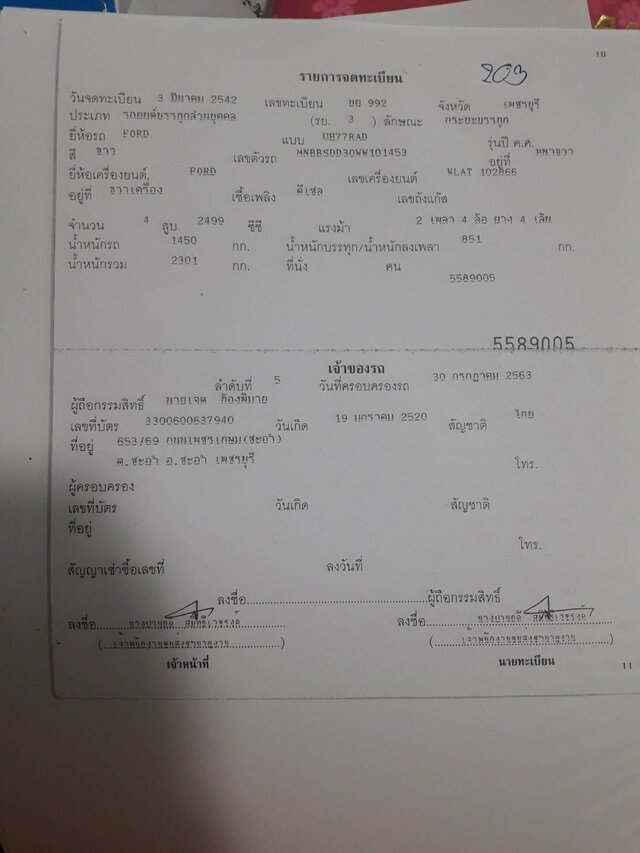 10
รายการจดทะเบียน 203
วันจดทะเบียน 3 มีนาคม 2542 เลขทะเบียน บย 992 จังหวัด เพชรบุรี
ประเภท รถยนต์บรรทุกส่วนบุคคล (รย. 3 ) ลักษณะ กระบะบรรทุก
ยี่ห้อรถ FORD แบบ UH77RAD รุ่นปี ค.ศ.
สี ขาว เลขตัวรถ MNBBSDD30WW101453 อยู่ที่
ยี่ห้อเครื่องยนต์, FORD เลขเครื่องยนต์ WLAT 102866
อยู่ที่ ขวาเครื่อง เชื้อเพลิง ดีเซล เลขถังแก๊ส
จำนวน 4 สูบ 2499 ซีซี แรงม้า 2 เพลา 4 ล้อ ยาง 4 เส้น
น้ำหนักรถ 1450 กก. น้ำหนักบรรทุก/น้ำหนักลงเพลา 851 กก.
น้ำหนักรวม 2301 กก. ที่นั่ง คน
5589005
5589005
เจ้าของรถ
ลำดับที่ 5 วันที่ครอบครองรถ 30 กรกฎาคม 2563
ผู้ถือกรรมสิทธิ์ นายเจต ก้องพิมาย
เลขที่บัตร 3300600637940 วันเกิด 19 มกราคม 2520 สัญชาติ ไทย
ที่อยู่ 653/69 ถนนเพชรเกษม(ชะอำ)
ต.ชะอำ อ.ชะอำ เพชรบุรี โทร.
ผู้ครอบครอง
เลขที่บัตร วันเกิด สัญชาติ
ที่อยู่
โทร.
สัญญาเช่าซื้อเลขที่ ลงวันที่
ลงชื่อ ผู้ถือกรรมสิทธิ์
ลงชื่อ ลงชื่อ
(เจ้าพนักงานขนส่งชำนาญงาน) (เจ้าพนักงานขนส่งชำนาญงาน)
เจ้าหน้าที่ นายทะเบียน
11